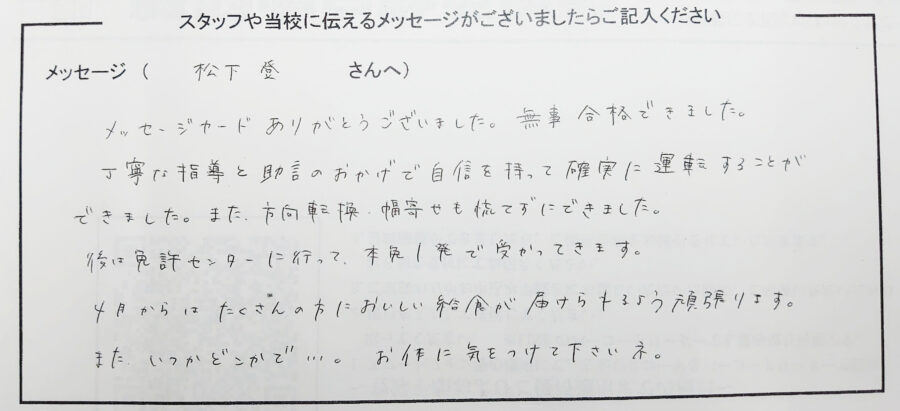 スタッフや当校に伝えるメッセージがございましたらご記入ください
メッセージ ( 松下 登 さんへ)
メッセージカードありがとうございました。無事合格できました。
丁寧な指導と助言のおかげで自信を持って確実に運転することが
できました。また、方向転換・幅寄せも慌てずにできました。
後は免許センターに行って、本免1発で受かってきます。
4月からはたくさんの方においしい給食が届けられるよう頑張ります。
また、いつかどこかで…。お体に気をつけて下さいネ。